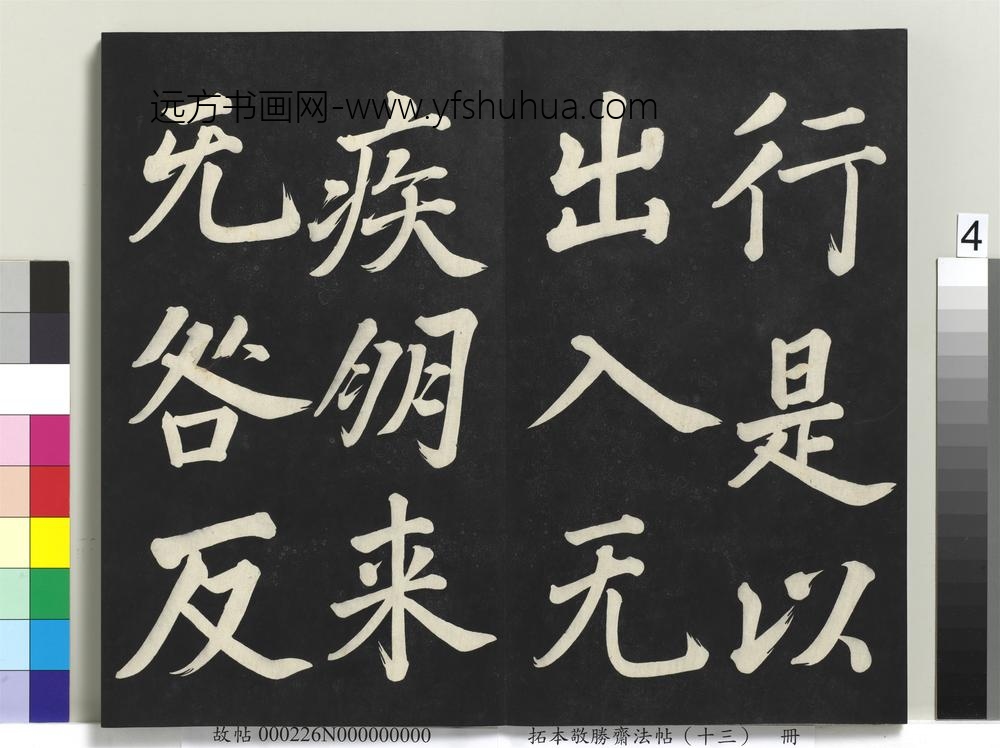 行是以
出入无
疾朋来
无咎反
远方书画网-www.yfshuhua.com
4
故帖 000226N000000000
拓本敬勝齋法帖（十三） 册